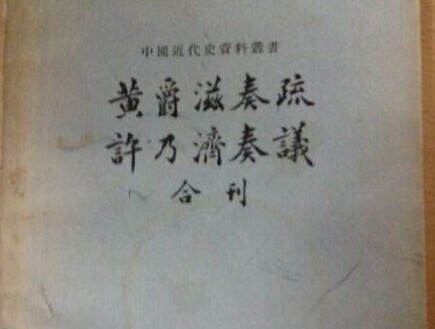 中國近代史資料叢書
黄爵滋奏疏
許乃濟奏議
合刊